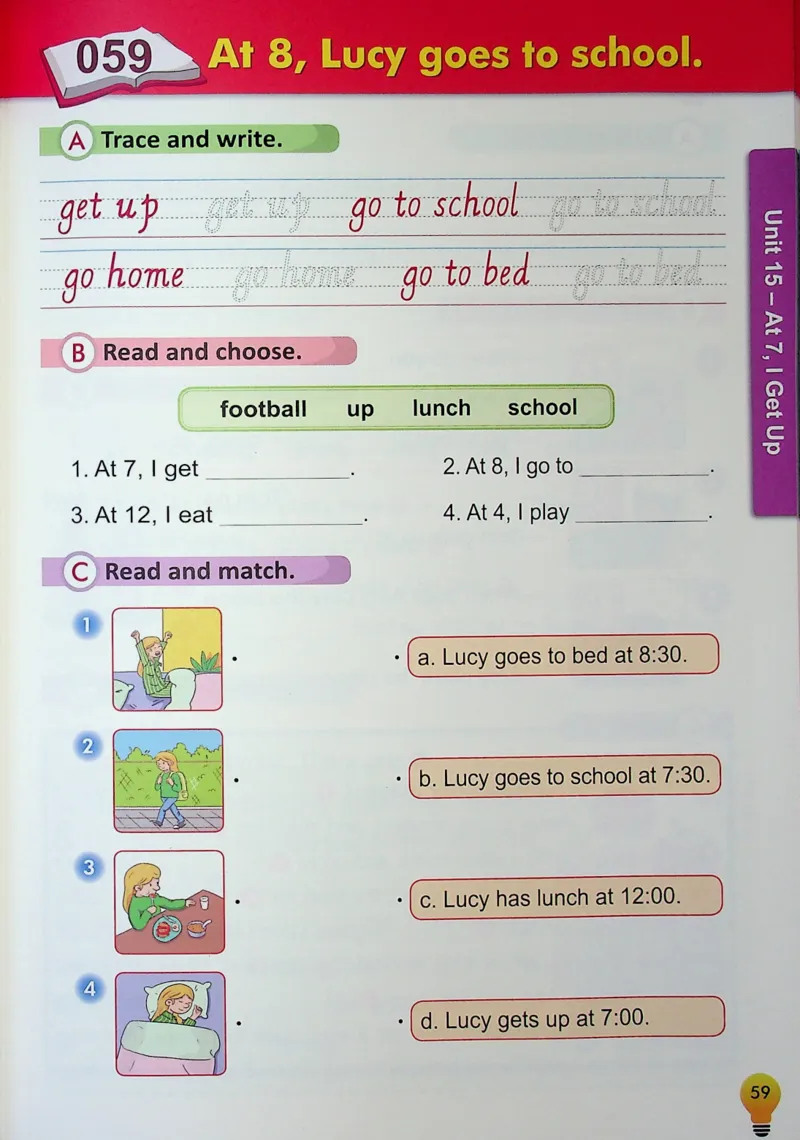 059 At 8, Lucy goes to school.
A Trace and write.
get up get up go to school go to school
go home go home go to bed go to bed
B Read and choose.
football up lunch school
1. At 7, I get ____________. 2. At 8, I go to ___________.
3. At 12, I eat ____________. 4. At 4, I play ___________.
C Read and match.
1
a. Lucy goes to bed at 8:30.
2
b. Lucy goes to school at 7:30.
3
c. Lucy has lunch at 12:00.
4
d. Lucy gets up at 7:00.
Unit 15 – At 7, I Get Up
59